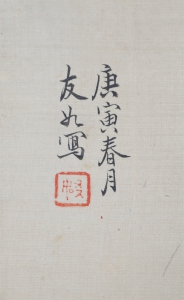 庚寅春月
友如寫